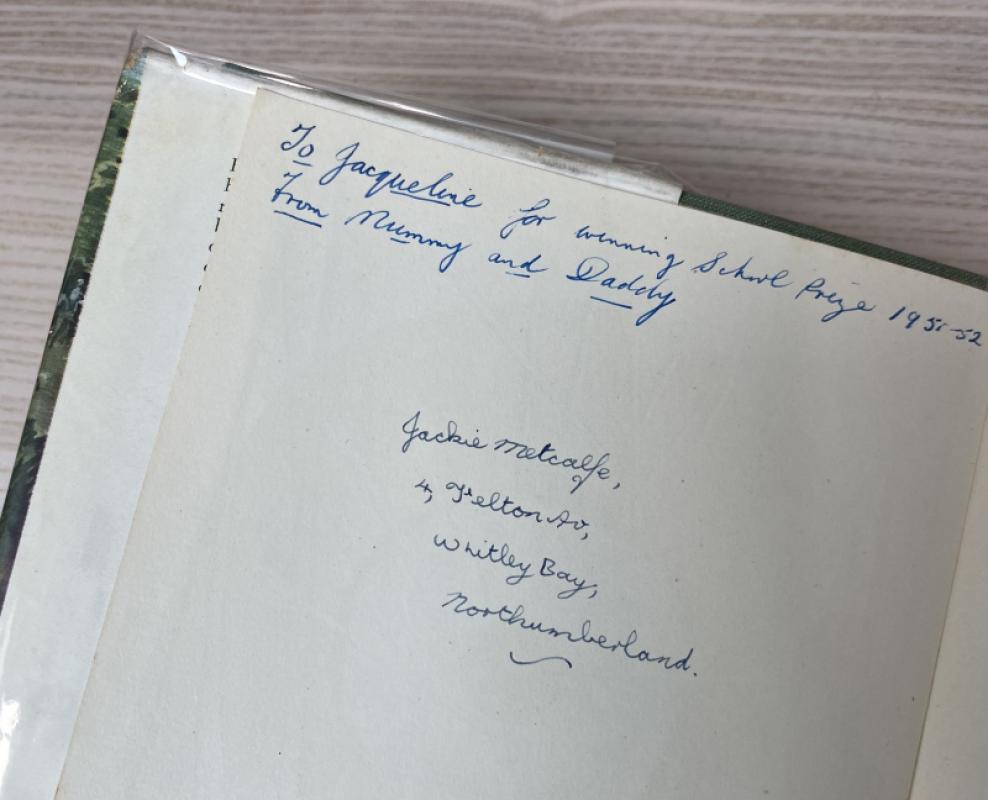 To Jacqueline for winning School Prize 1951-52
From Mummy and Daddy
Jackie Metcalfe,
4, Felton Av,
Whitley Bay,
Northumberland.